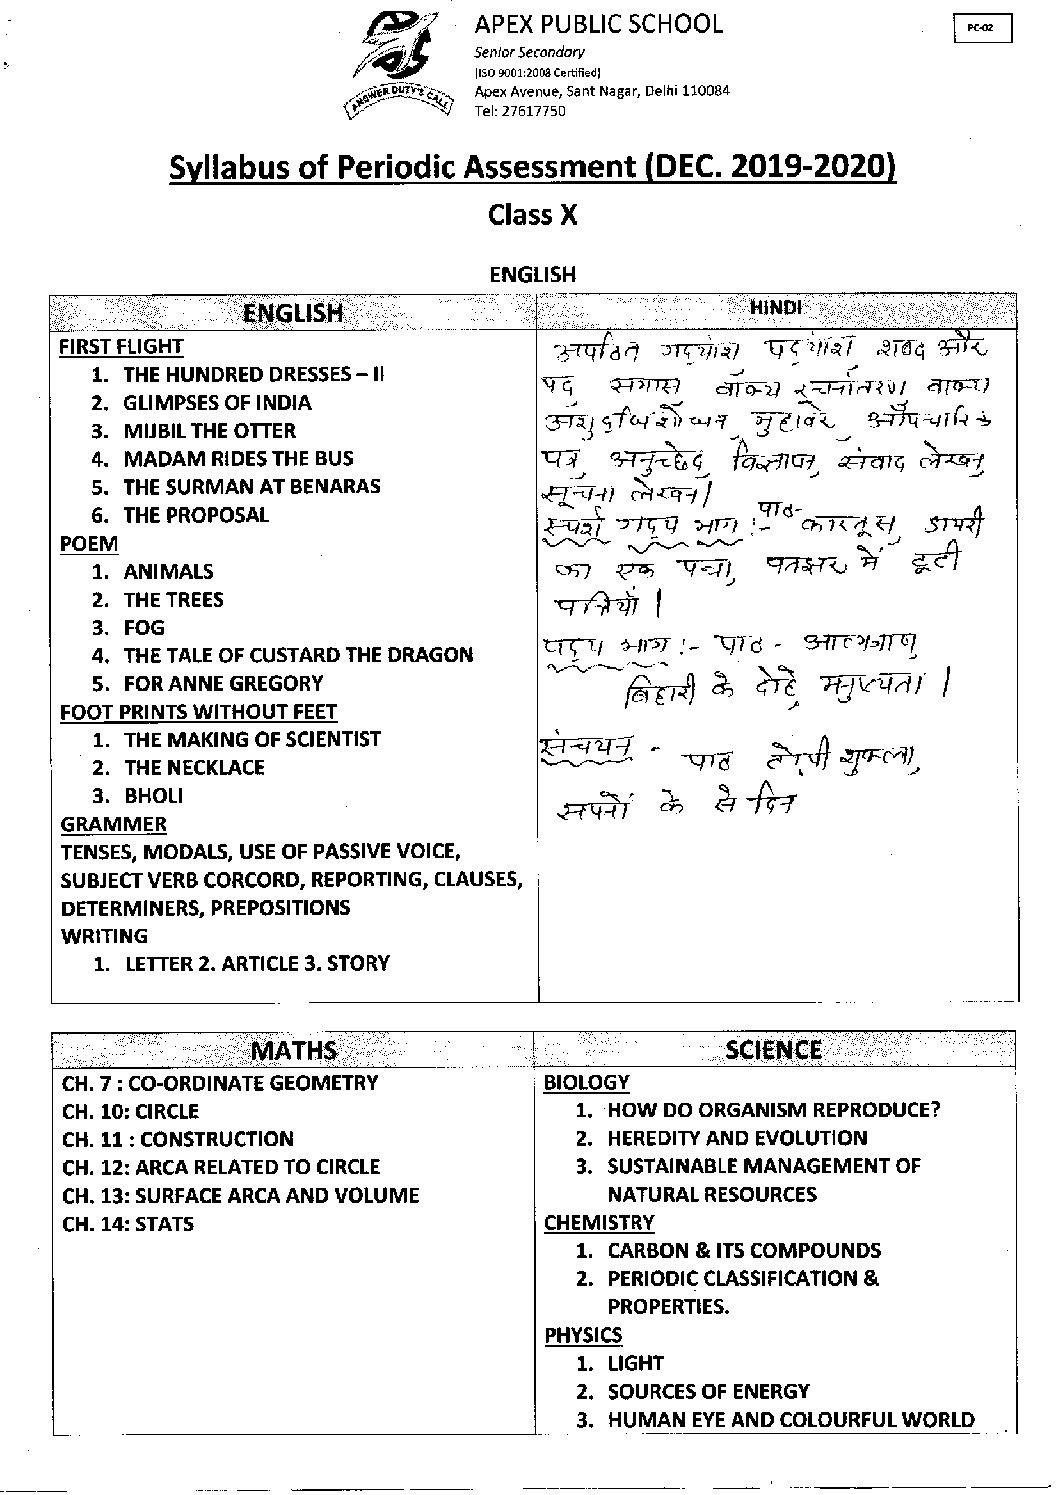 APEX PUBLIC SCHOOL
PC-02
Senior Secondary
(ISO 9001:2008 Certified)
ANSWER DUTY'S CALL
Apex Avenue, Sant Nagar, Delhi 110084
Tel: 27617750
Syllabus of Periodic Assessment (DEC. 2019-2020)
Class X
ENGLISH
ENGLISH
FIRST FLIGHT
1. THE HUNDRED DRESSES – II
2. GLIMPSES OF INDIA
3. MIJBIL THE OTTER
4. MADAM RIDES THE BUS
5. THE SURMAN AT BENARAS
6. THE PROPOSAL
POEM
1. ANIMALS
2. THE TREES
3. FOG
4. THE TALE OF CUSTARD THE DRAGON
5. FOR ANNE GREGORY
FOOT PRINTS WITHOUT FEET
1. THE MAKING OF SCIENTIST
2. THE NECKLACE
3. BHOLI
GRAMMER
TENSES, MODALS, USE OF PASSIVE VOICE,
SUBJECT VERB CORCORD, REPORTING, CLAUSES,
DETERMINERS, PREPOSITIONS
WRITING
1. LETTER 2. ARTICLE 3. STORY
HINDI
अपठित गद्यांश पद्यांश शब्द और
पद समास वाक्य रचनांतरण वाक्य
मुहावरे, औपचारिक
पत्र, अनुच्छेद, विज्ञापन, संवाद लेखन,
सूचना लेखन।
स्पर्श गद्य भाग :- पाठ- कारतूस, डायरी
का एक पन्ना, पतझर में टूटी
पत्तियाँ।
पद्य भाग :- पाठ - आत्मत्राण
बिहारी के दोहे, मनुष्यता।
संचयन - पाठ टोपी शुक्ला,
सपनों के से दिन
MATHS
CH. 7 : CO-ORDINATE GEOMETRY
CH. 10: CIRCLE
CH. 11 : CONSTRUCTION
CH. 12: ARCA RELATED TO CIRCLE
CH. 13: SURFACE ARCA AND VOLUME
CH. 14: STATS
SCIENCE
BIOLOGY
1. HOW DO ORGANISM REPRODUCE?
2. HEREDITY AND EVOLUTION
3. SUSTAINABLE MANAGEMENT OF
NATURAL RESOURCES
CHEMISTRY
1. CARBON & ITS COMPOUNDS
2. PERIODIC CLASSIFICATION &
PROPERTIES.
PHYSICS
1. LIGHT
2. SOURCES OF ENERGY
3. HUMAN EYE AND COLOURFUL WORLD